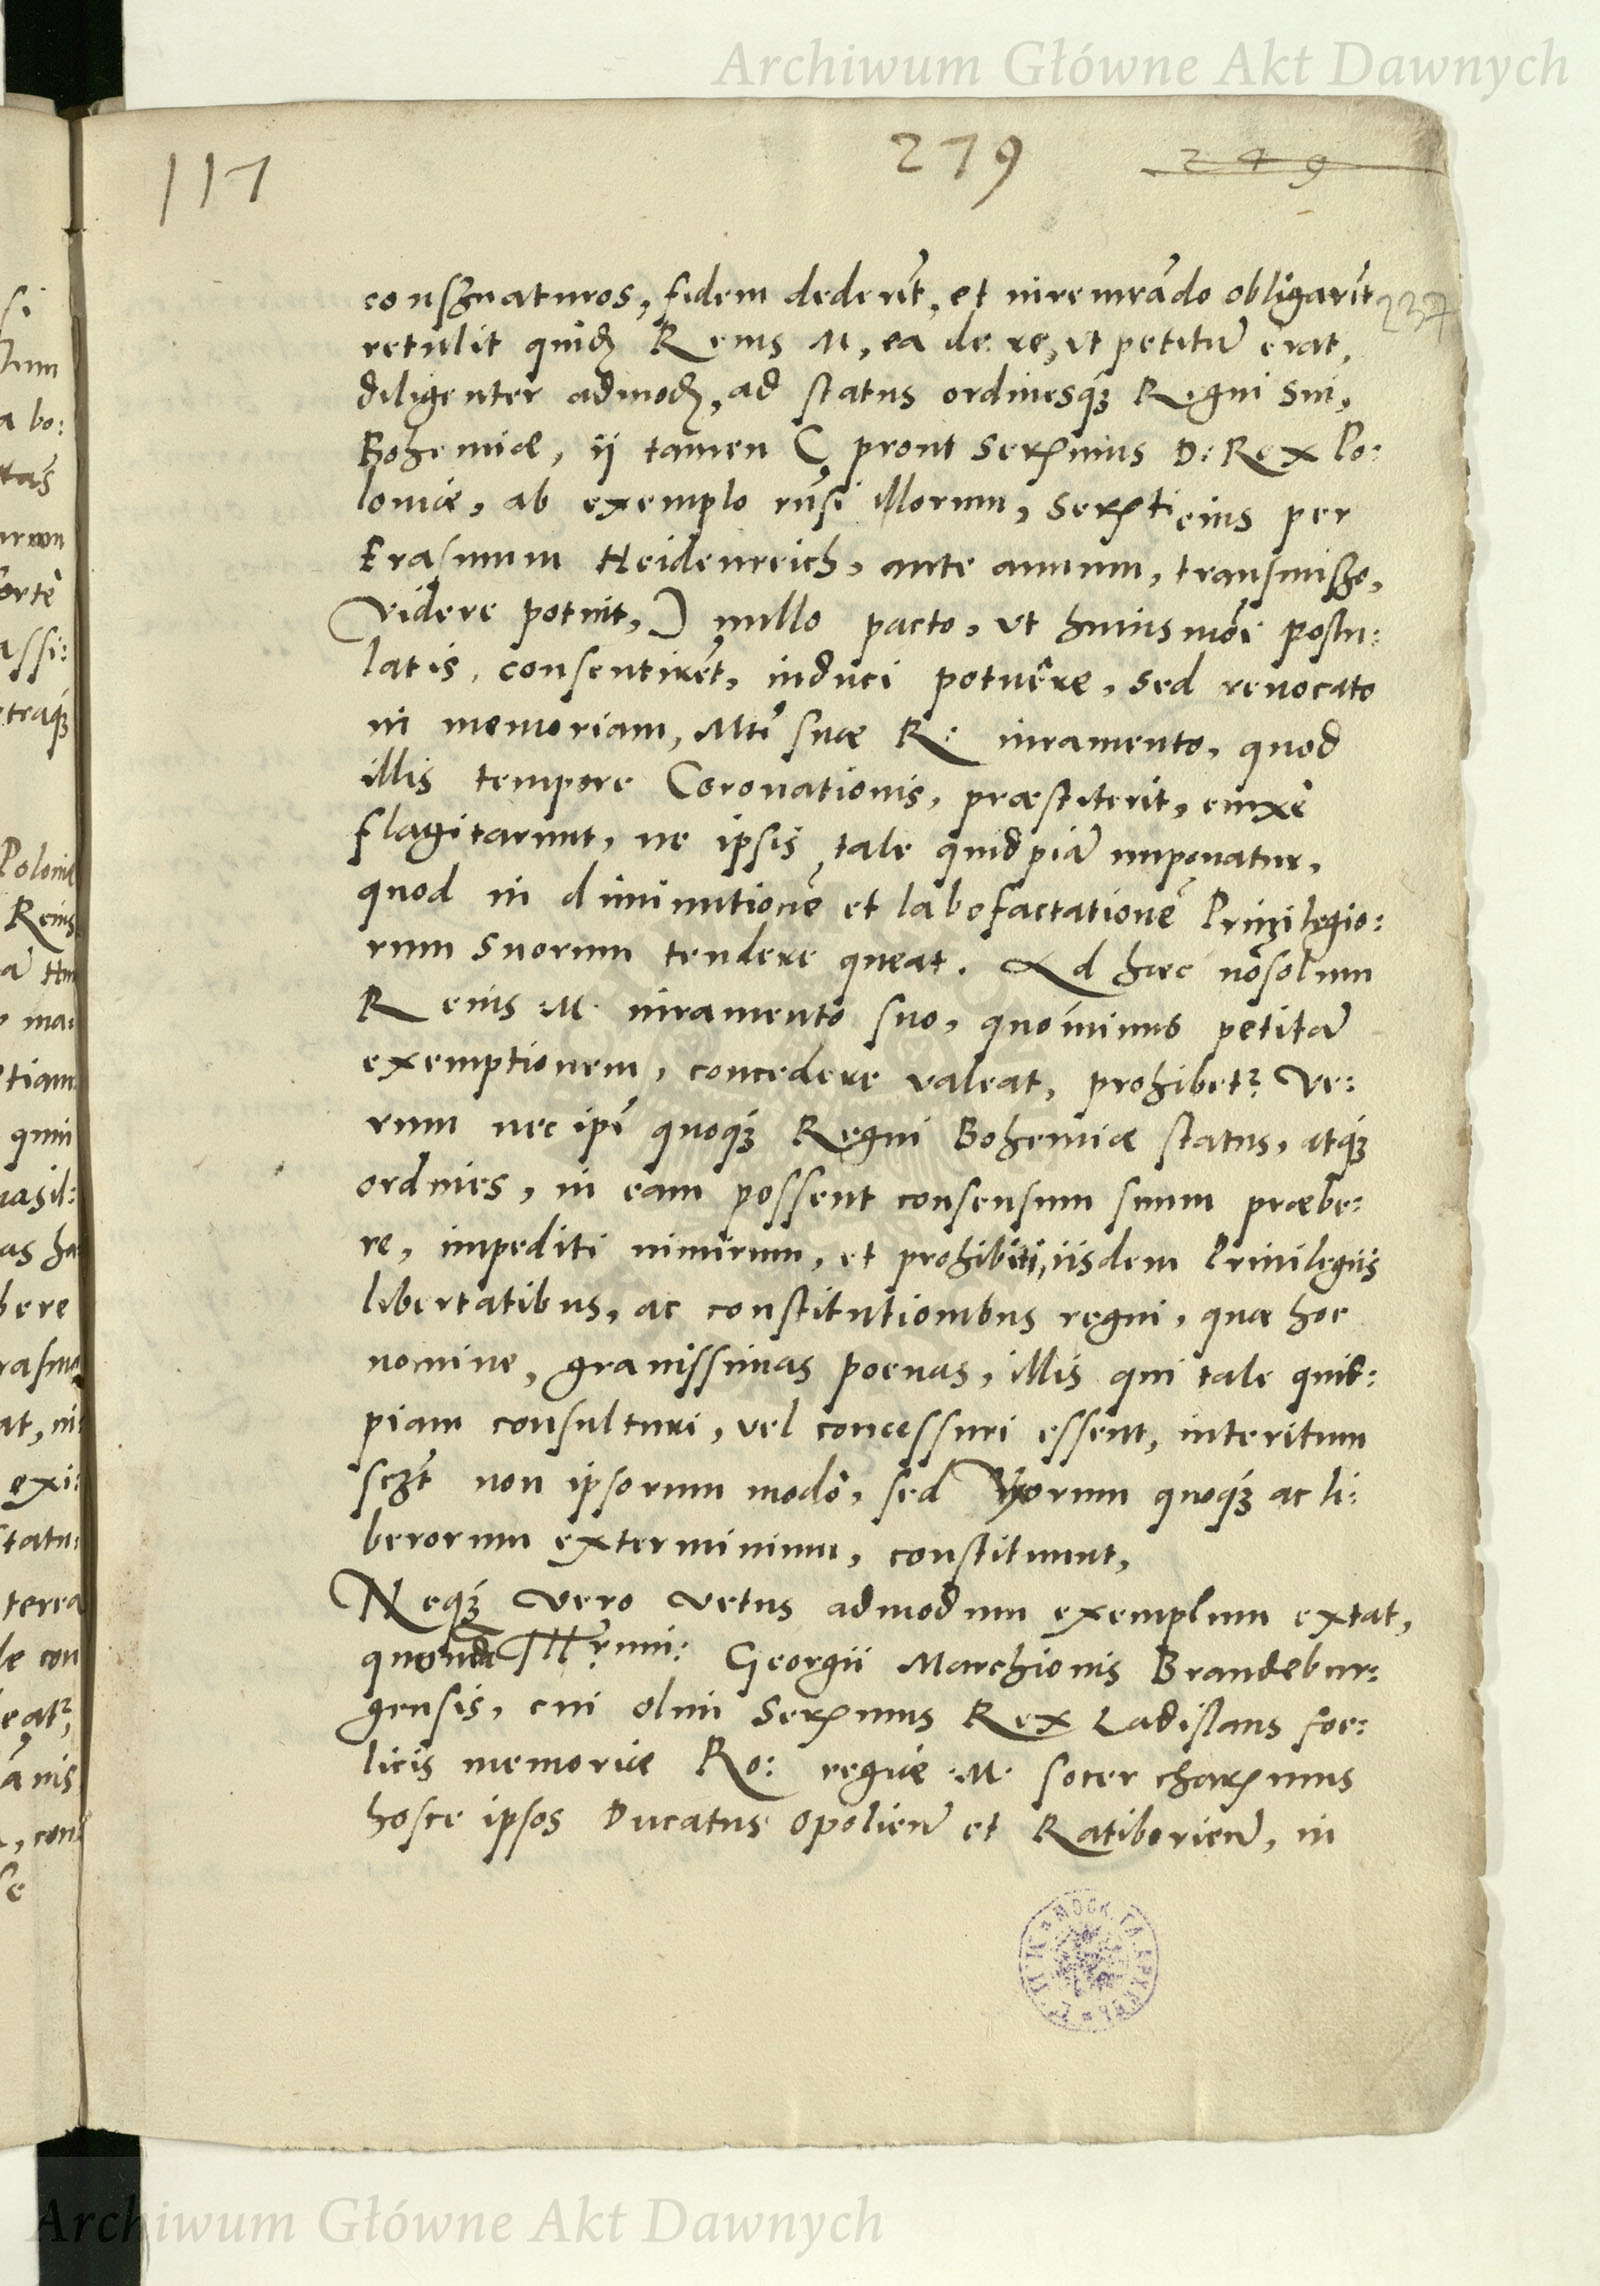 Archiwum Główne Akt Dawnych
117
279
249
conseruaturos, fidem dederĩt, et iureiurãdo obligarĩt
237
retulit quidẽ R eius M, ea de re, ut petitũ erat,
diligenter admodũ, ad status ordinesq́ꝫ Regni sui,
Bohemiæ, ij tamen ( prout Serᵐⁱmus D: Rex Po:
loniæ, ab exemplo rũsi illorum, Serᵗⁱ eius per
Erasmum Heidenreich, ante annum, transmisso,
videre potuit, ) nullo pacto, ut huiusmõi postu:
latis, consentirẽt, induci potuêre, sed reuocato
in memoriam, Mti suæ R: iuramento, quod
illis tempore Coronationis, præstiterit, enixè
flagitarunt, ne ipsis tale quidpiã imponatur,
quod in diminutionẽ et labefactationẽ Priuilegio:
rum suorum tendere queat. Ad hæc nõsolum
R eius M. iuramento suo, quóminus petitã
exemptionem, concedere valeat, prohibetᷣ Ve:
rum nec ipĩ quoq́ꝫ Regni Bohemiæ status, atq́ꝫ
ordines, in eam possent consensum suum præbe:
re, impediti nimirum, et prohibiti, iisdem Priuilegiis
libertatibus, ac constitutionibus regni, quæ hoc
nomine, grauissimas poenas, illis qui tale quit:
piam consulturi, vel concessuri essent, interitum
sczt non ipsorum modò, sed Vxorum quoq́ꝫ ac li:
berorum exterminium, constituunt,
Neq́ꝫ vero vetus admodum exemplum extat,
quondã Illʳᵐi: Georgii Marchionis Brandebur:
gensis, cui olim Serᵐⁱmus Rex Ladislaus foe:
licis memoriæ Ro: regiæ M. socer charᵐⁱmus
hosce ipsos Ducatus Opolien̄ et Ratiborien̄, in
Archiwum Główne Akt Dawnych